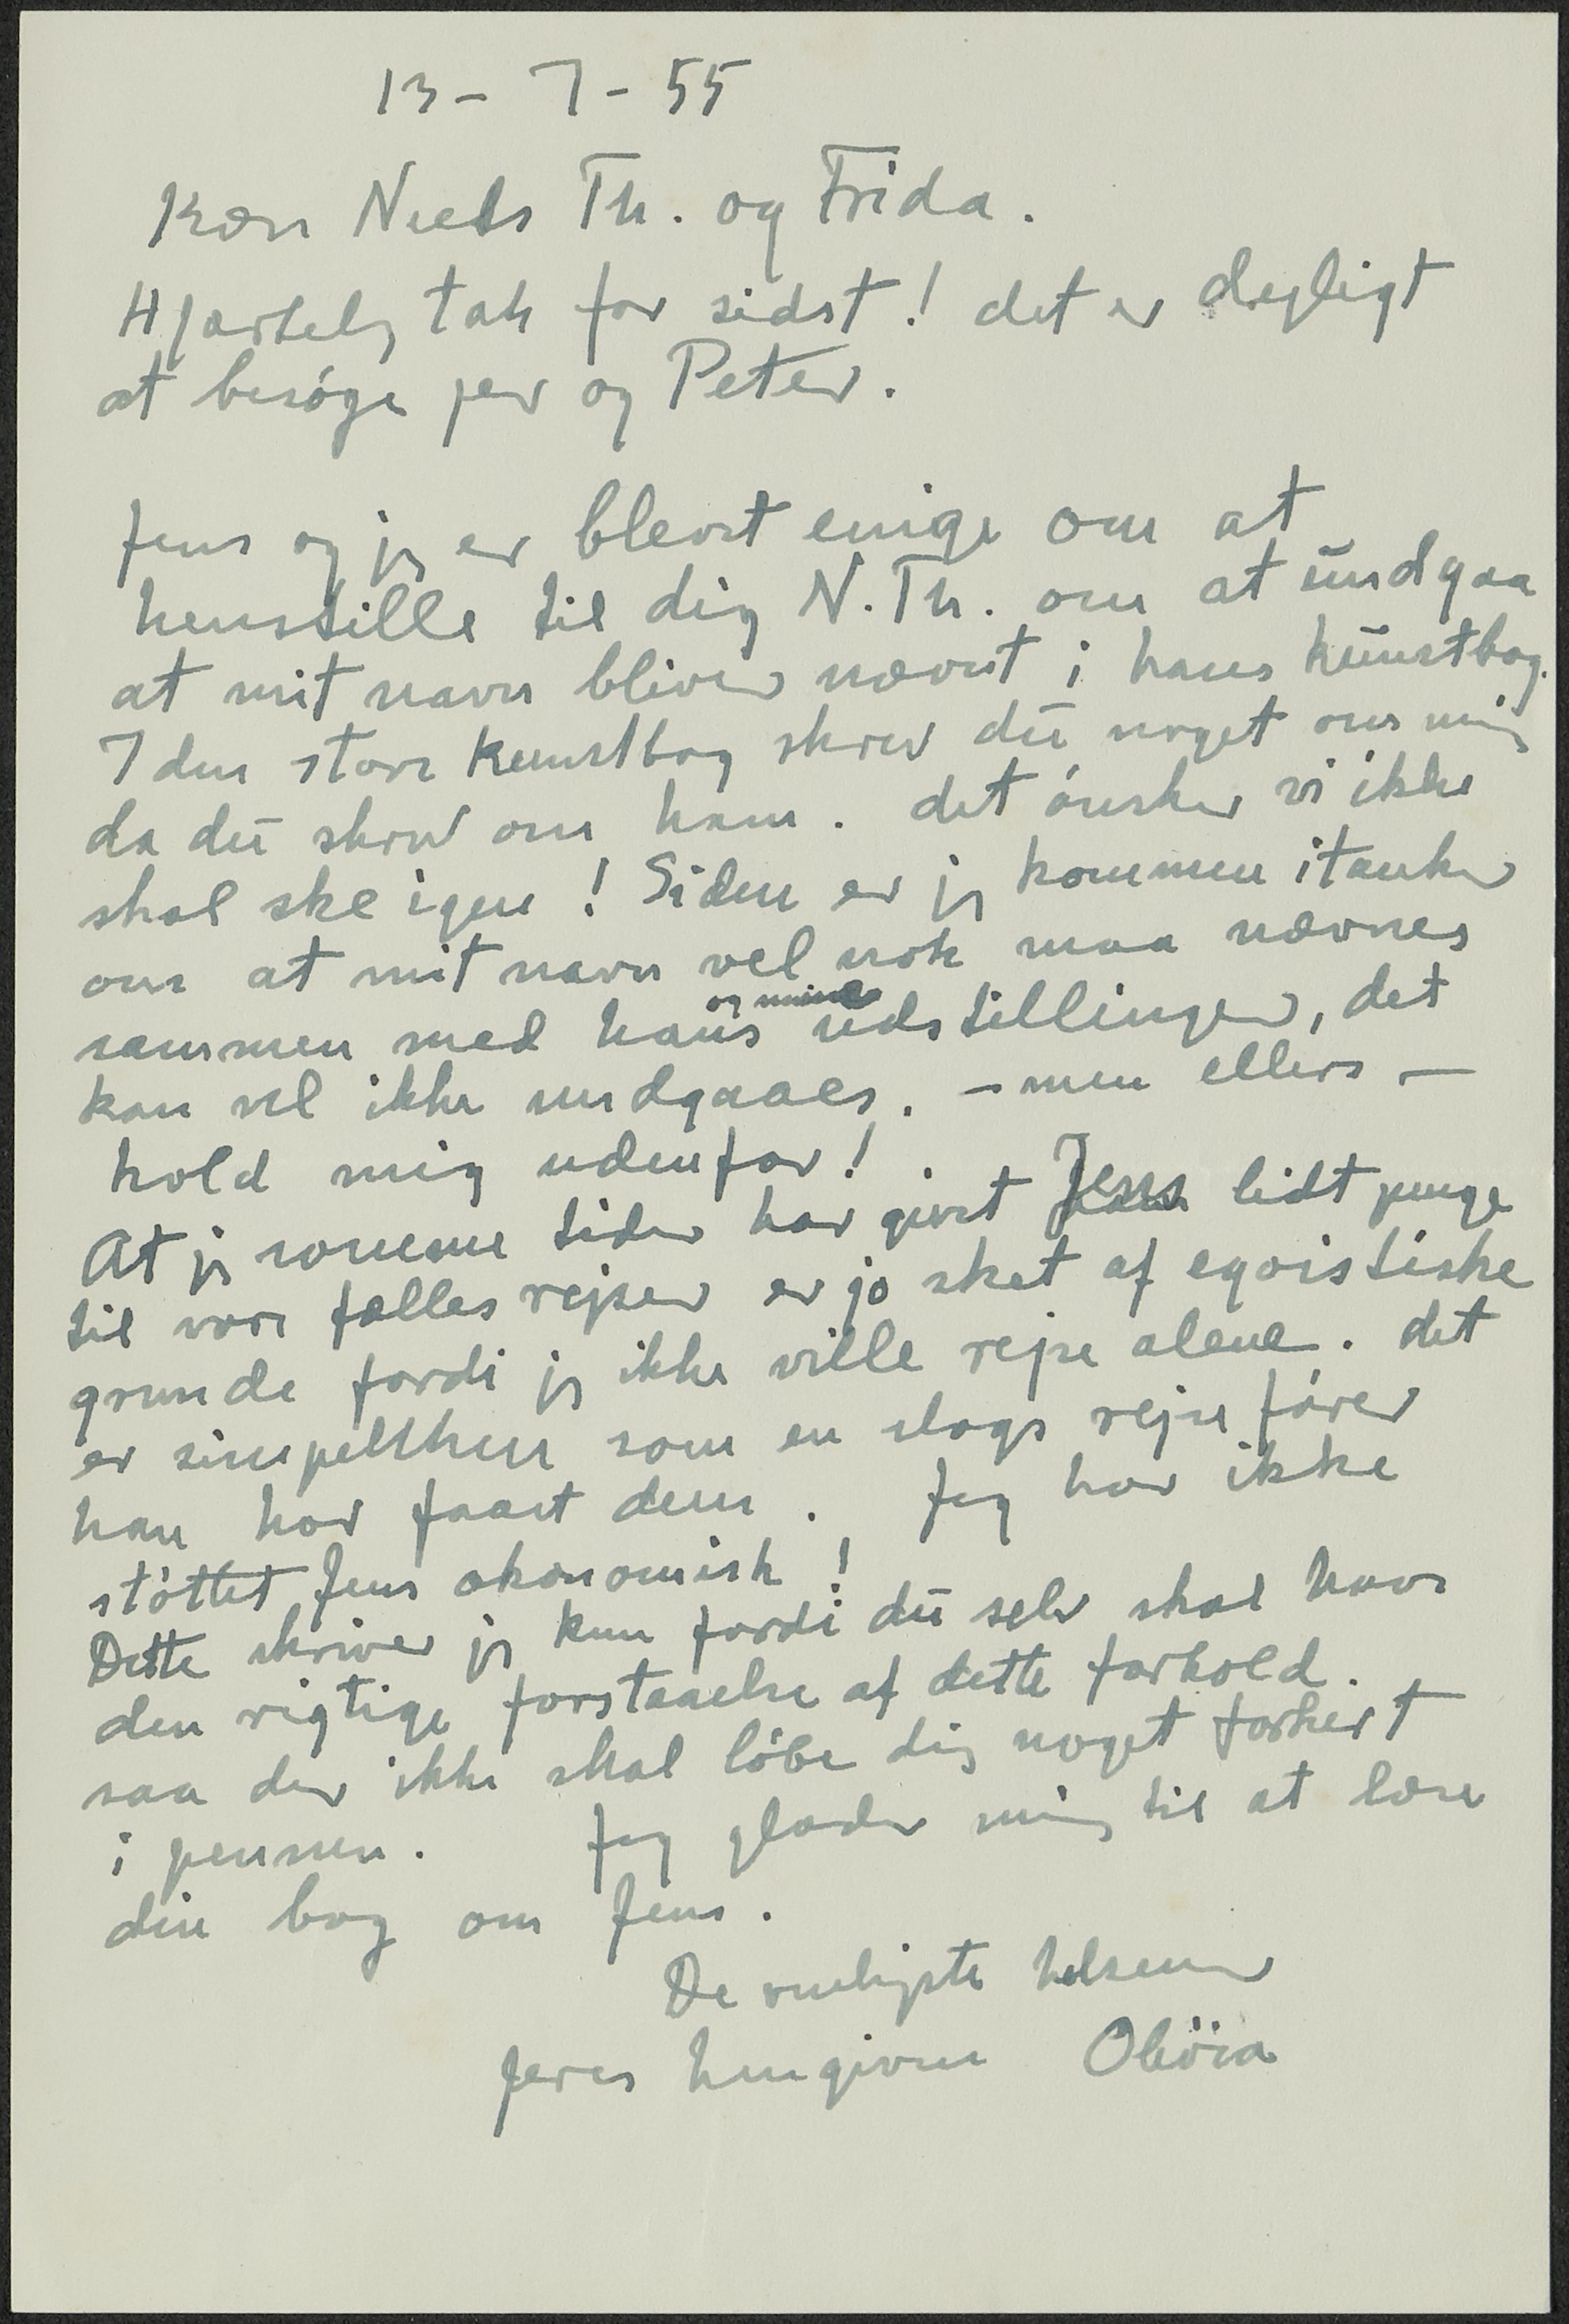 13 - 7 - 55
Kære Niels Th. og Frida.
Hjærtelig tak for sidst! det er dejligt
at besøge jer og Peter.
Jens og jeg er blevet enige om at
henstille til dig N. Th. om at undgaa
at mit navn bliver nævnt i hans kunstbog.
I den store kunstbog skrev du noget om mig
da du skrev om ham. det ønsker vi ikke
skal ske igen! Siden er jeg kommen i tanker
om at mit navn vel nok maa nævnes
sammen med hans og mine udstillinger, det
kan vel ikke undgaaes. – men ellers –
hold mig udenfor!
At jeg somme tider har givet Jens lidt penge
til vore fælles rejser er jo sket af egoistiske
grunde fordi jeg ikke ville rejse alene. det
er simpelthen som en slags rejsefører
han har faaet dem. Jeg har ikke
støttet Jens økonomisk!
Dette skriver jeg kun fordi du selv skal have
den rigtige forstaaelse af dette forhold.
saa der ikke skal løbe dig noget forkert
i pennen. Jeg glæder mig til at læse
din bog om Jens.
De venligste hilsener
Jeres hengivne Olivia